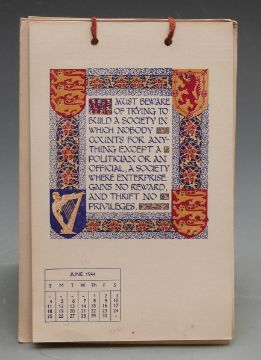 WE MUST BEWARE
OF TRYING TO
BUILD A SOCIETY IN
WHICH NOBODY
COUNTS FOR ANY-
THING EXCEPT A
POLITICIAN OR AN
OFFICIAL, A SOCIETY
WHERE ENTERPRISE
GAINS NO REWARD,
AND THRIFT NO
PRIVILEGES.
JUNE 1944
S M T W Th F S
1 2 3
4 5 6 7 8 9 10
11 12 13 14 15 16 17
18 19 20 21 22 23 24
25 26 27 28 29 30